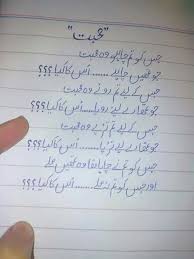 "محبت"
جس کو تم چاہو وہ محبت
جو تمھیں چاہے ...... اُس کا کیا ؟؟؟
جس کے لیے تم روئے وہ محبت
جو تمھارے لیے رویا ... اُس کا کیا ؟؟؟
جس کے لیے تم تڑپے وہ محبت
جو تمھارے لیے تڑپا .... اُس کا کیا ؟؟؟
جس کو تم نے چاہا وہ تمھیں ملے
اور جس کو تم نہ ملے .. اُس کا کیا ؟؟؟